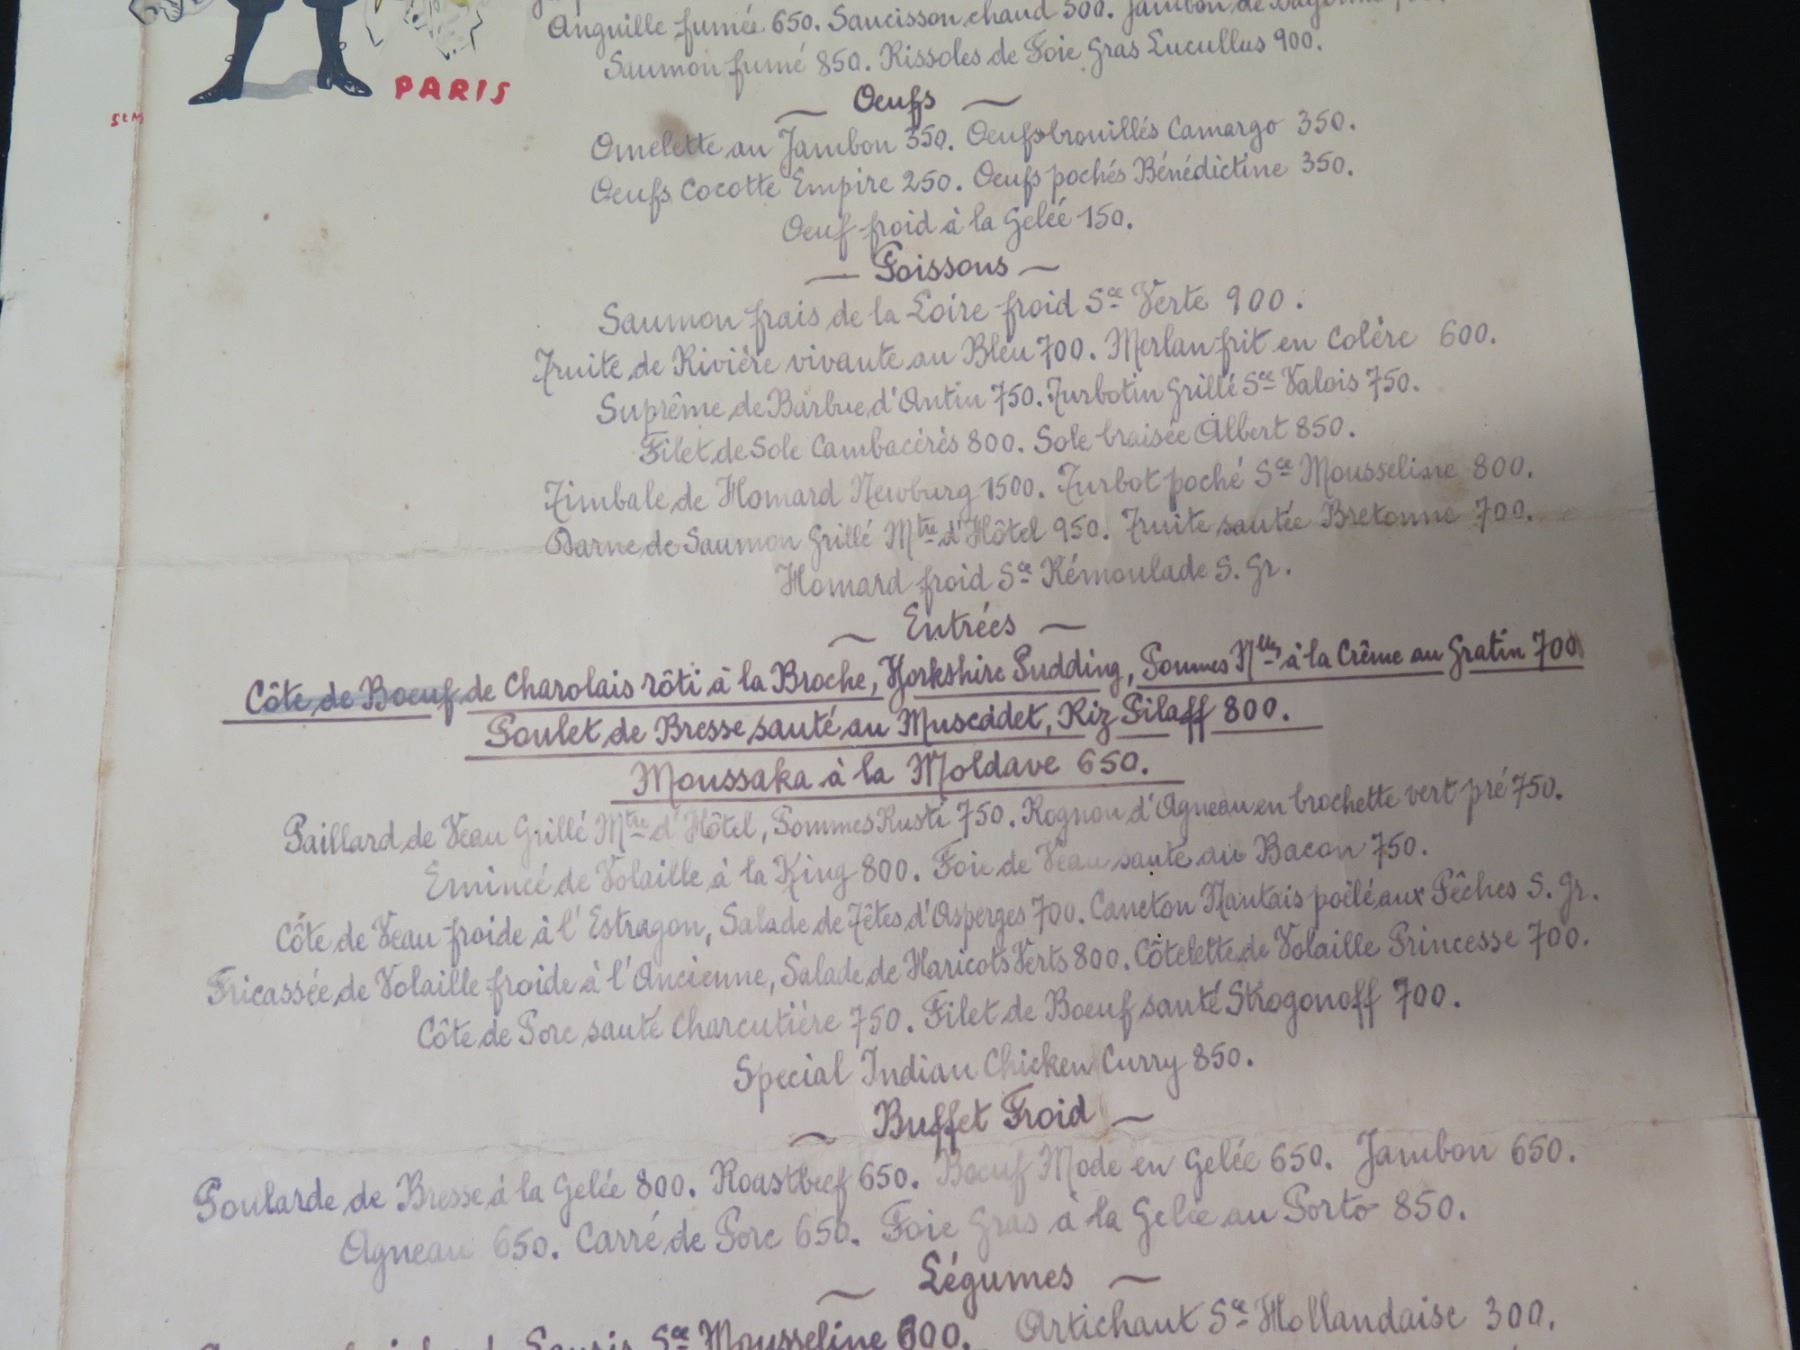 Anguille fumée 650. Saucisson chaud 500. Jambon de
PARIS
SEM
Saumon fumé 850. Rissoles de Foie Gras Lucullus 900.
~ Oeufs ~
Omelette au Jambon 350. Oeufs brouillés Camargo 350.
Oeufs Cocotte Empire 250. Oeufs pochés Bénédictine 350.
Oeuf froid à la Gelée 150.
~ Poissons ~
Saumon frais de la Loire froid Sce Verte 900.
Truite de Rivière vivante au Bleu 700. Merlan frit en Colère 600.
Suprême de Barbue d'Antin 750. Turbotin Grillé Sce Valois 750.
Filet de Sole Cambacérès 800. Sole braisée Albert 850.
Timbale de Homard Newburg 1500. Turbot poché Sce Mousseline 800.
Darne de Saumon Grillé Mtre d'Hôtel 950. Truite sautée Bretonne 700.
Homard froid Sce Rémoulade S. Gr.
~ Entrées ~
Côte de Boeuf de Charolais rôti à la Broche, Yorkshire Pudding, Pommes Nlles à la Crême au Gratin 700
Poulet de Bresse sauté au Muscadet, Riz Pilaff 800.
Moussaka à la Moldave 650.
Paillard de Veau Grillé Mtre d'Hôtel, Pommes Rusti 750. Rognon d'Agneau en brochette vert pré 750.
Emincé de Volaille à la King 800. Foie de Veau sauté au Bacon 750.
Côte de Veau froide à l'Estragon, Salade de Têtes d'Asperges 700. Caneton Nantais poêlé aux Pêches S. Gr.
Fricassée de Volaille froide à l'Ancienne, Salade de Haricots Verts 800. Côtelette de Volaille Princesse 700.
Côte de Porc sauté Charcutière 750. Filet de Boeuf sauté Strogonoff 700.
Special Indian Chicken Curry 850.
~ Buffet Froid ~
Poularde de Bresse à la Gelée 800. Roastbeef 650. Boeuf Mode en Gelée 650. Jambon 650.
Agneau 650. Carré de Porc 650. Foie Gras à la Gelée au Porto 850.
~ Légumes ~
Sce Mousseline 600. Artichaut Sce Hollandaise 300.